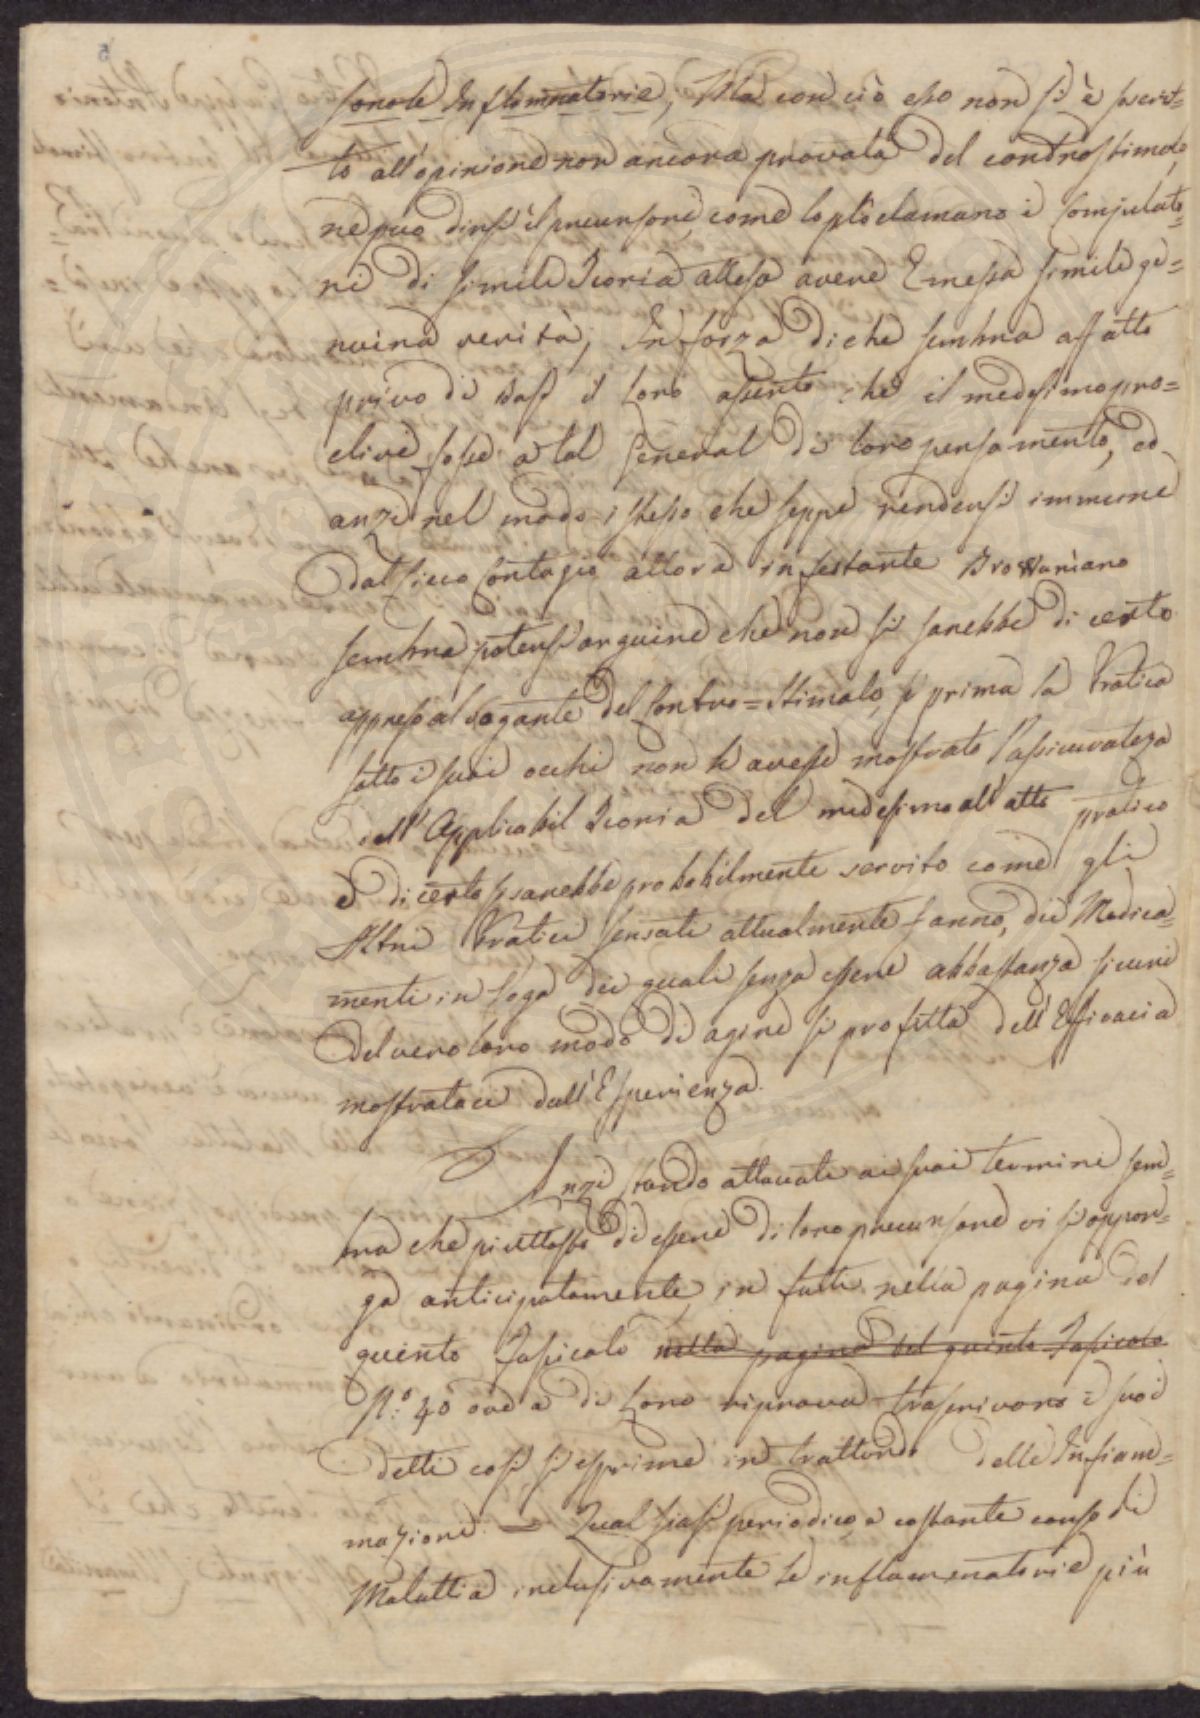 sonole Inflammatorie, Ma con ciò esso non si è sosent=
to all'opinione non ancora provata del controstimolo,
ne puo dirsi il precursore, come lo proclamano i Compilato=
ri di simile Teoria atteso avere Emessa simile ge=
nuina verità; In forza di che sembra affatto
privo di basi il loro asserto che il medesimo pro=
clive fosse a tal general di loro pensamento, ed
anzi nel modo istesso che seppe rendersi immune
dal sicco Contagio allora infestante Browniano
sembra potersi arguire che non si sarebbe di certo
appreso al vagante del Contro=stimolo, se prima la Pratica
sotto i suoi occhi non le avesse mostrato l'assicuratezza
dell'Applicabil Teoria del medesimo all'atto pratico
e di certo si sarebbe probabilmente servito come gli
Altri Pratici sensati attualmente fanno, dei Medica=
menti in Voga dei quali senza essere abbastanza sicuri
del vero loro modo di agire si profitta dell'Efficacia
mostrataci dall'Esperienza.
Anzi stando attaccati ai suoi termini sem=
bra che piuttosto di essere di loro precursore vi si oppon=
ga anticipatamente, in fatti nella pagina del
quinto Fascicolo nella pagina del quinto Fascicolo
N.º 40 ove a di Loro riprova trascrivono i suoi
detti così si esprime in trattando delle Infiam=
mazioni = Qual siasi periodico, o costante corso di
Malattia inclusivamente le inflammatorie più